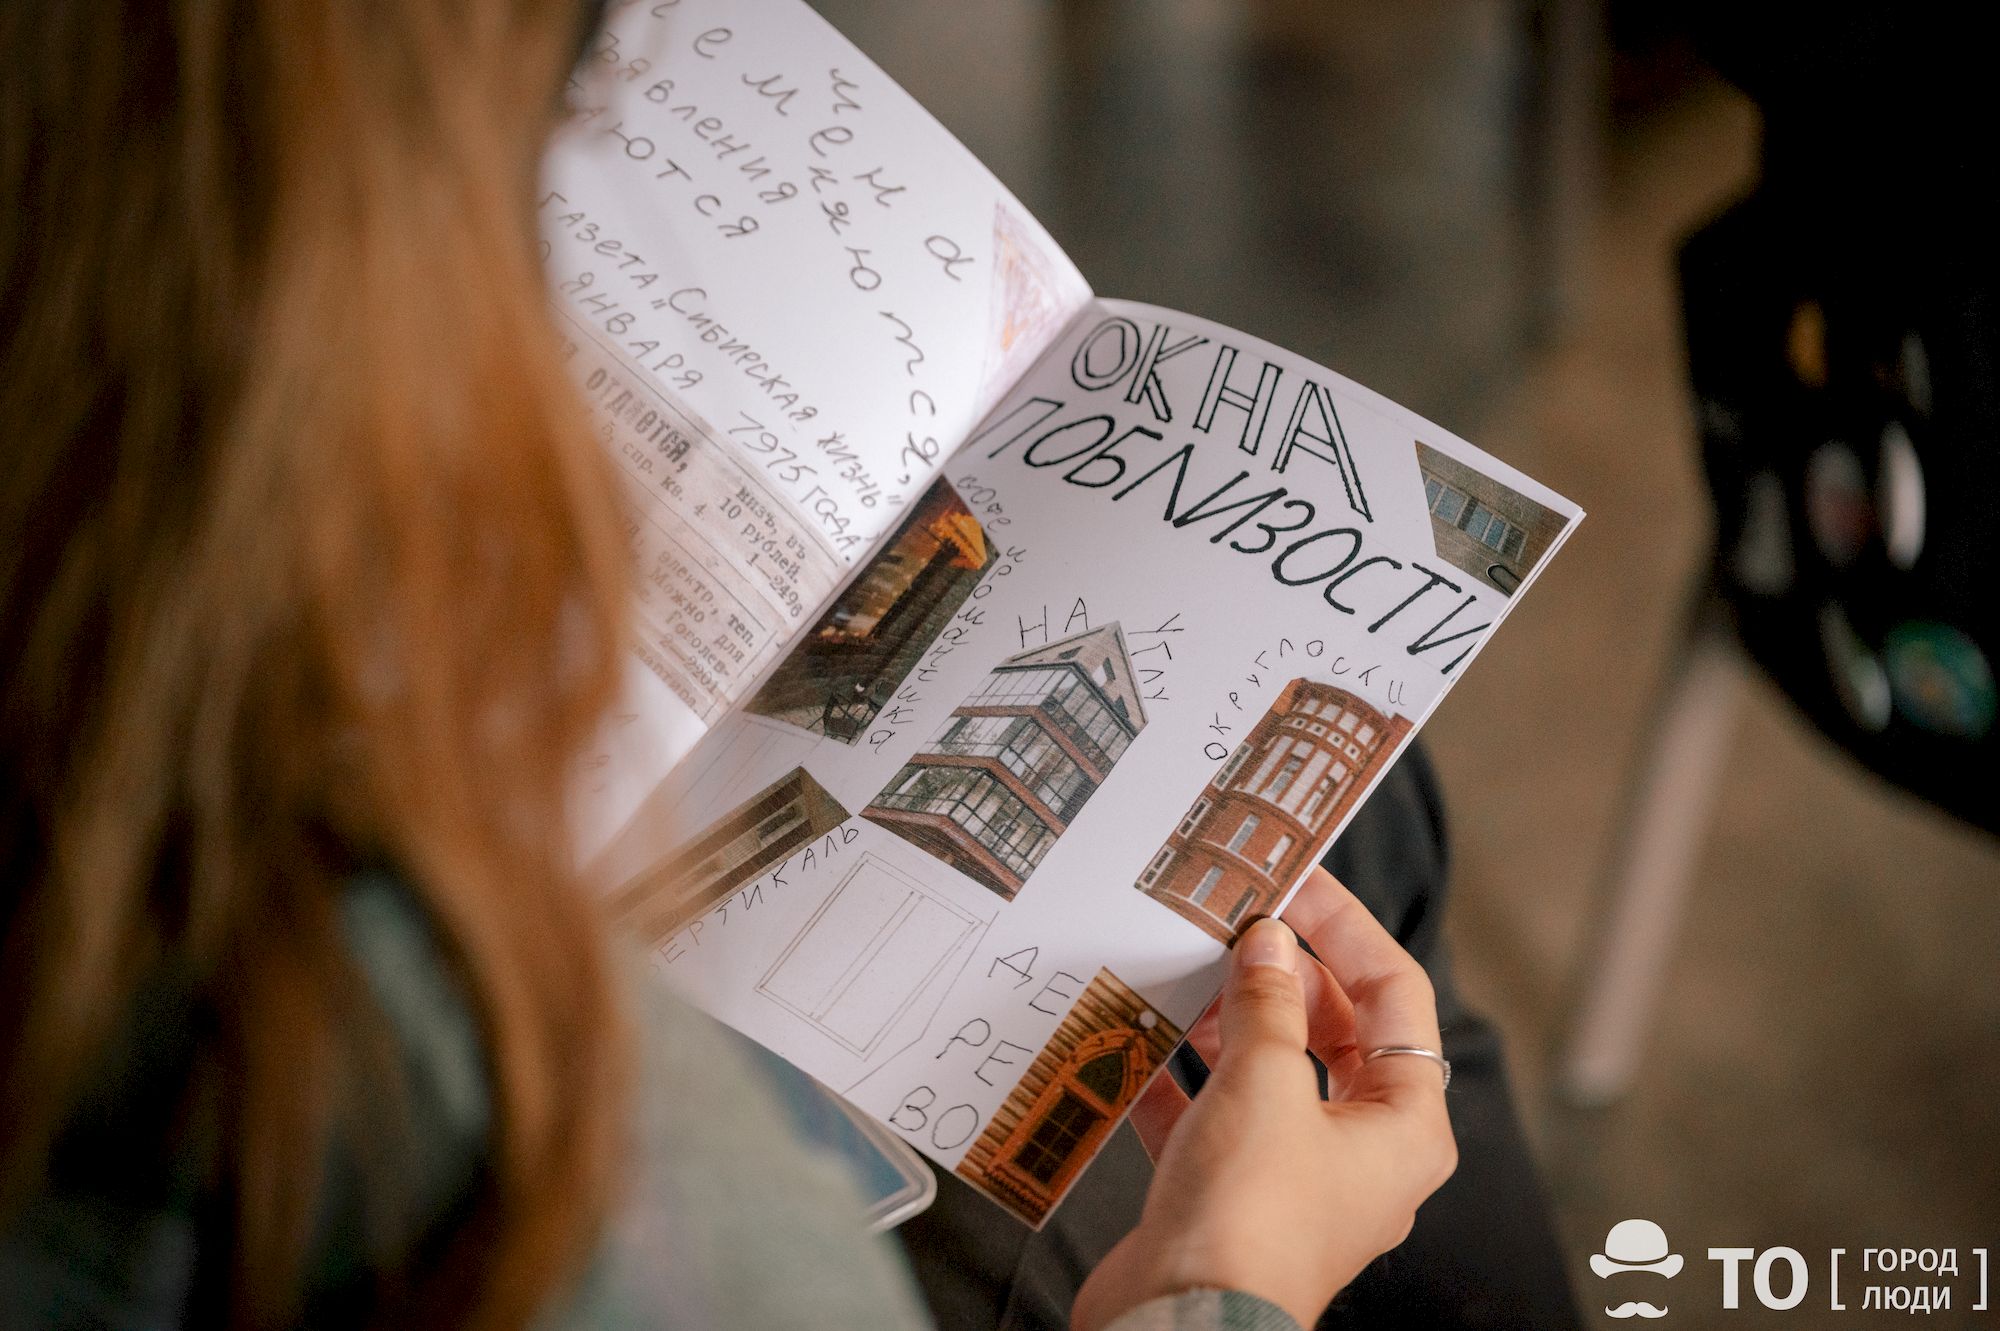 чена
ем чекяются,
явления
ются
ГАЗЕТА „СИБИРСКАЯ ЖИЗНЬ"
ЯНВАРЯ 1915 ГОДА.
ОТДАЕТСЯ,
низъ, въ
б, спр. кв. 4. 10 рублей.
1—2496
электр., теп.
Можно для
Гоголев-
2—2201
ОКНА
ПОБЛИЗОСТИ
кофе и романтика
НА УГЛУ
округлости
ВЕРТИКАЛЬ
ДЕ
РЕ
ВО
ТО [ ГОРОД
ЛЮДИ ]